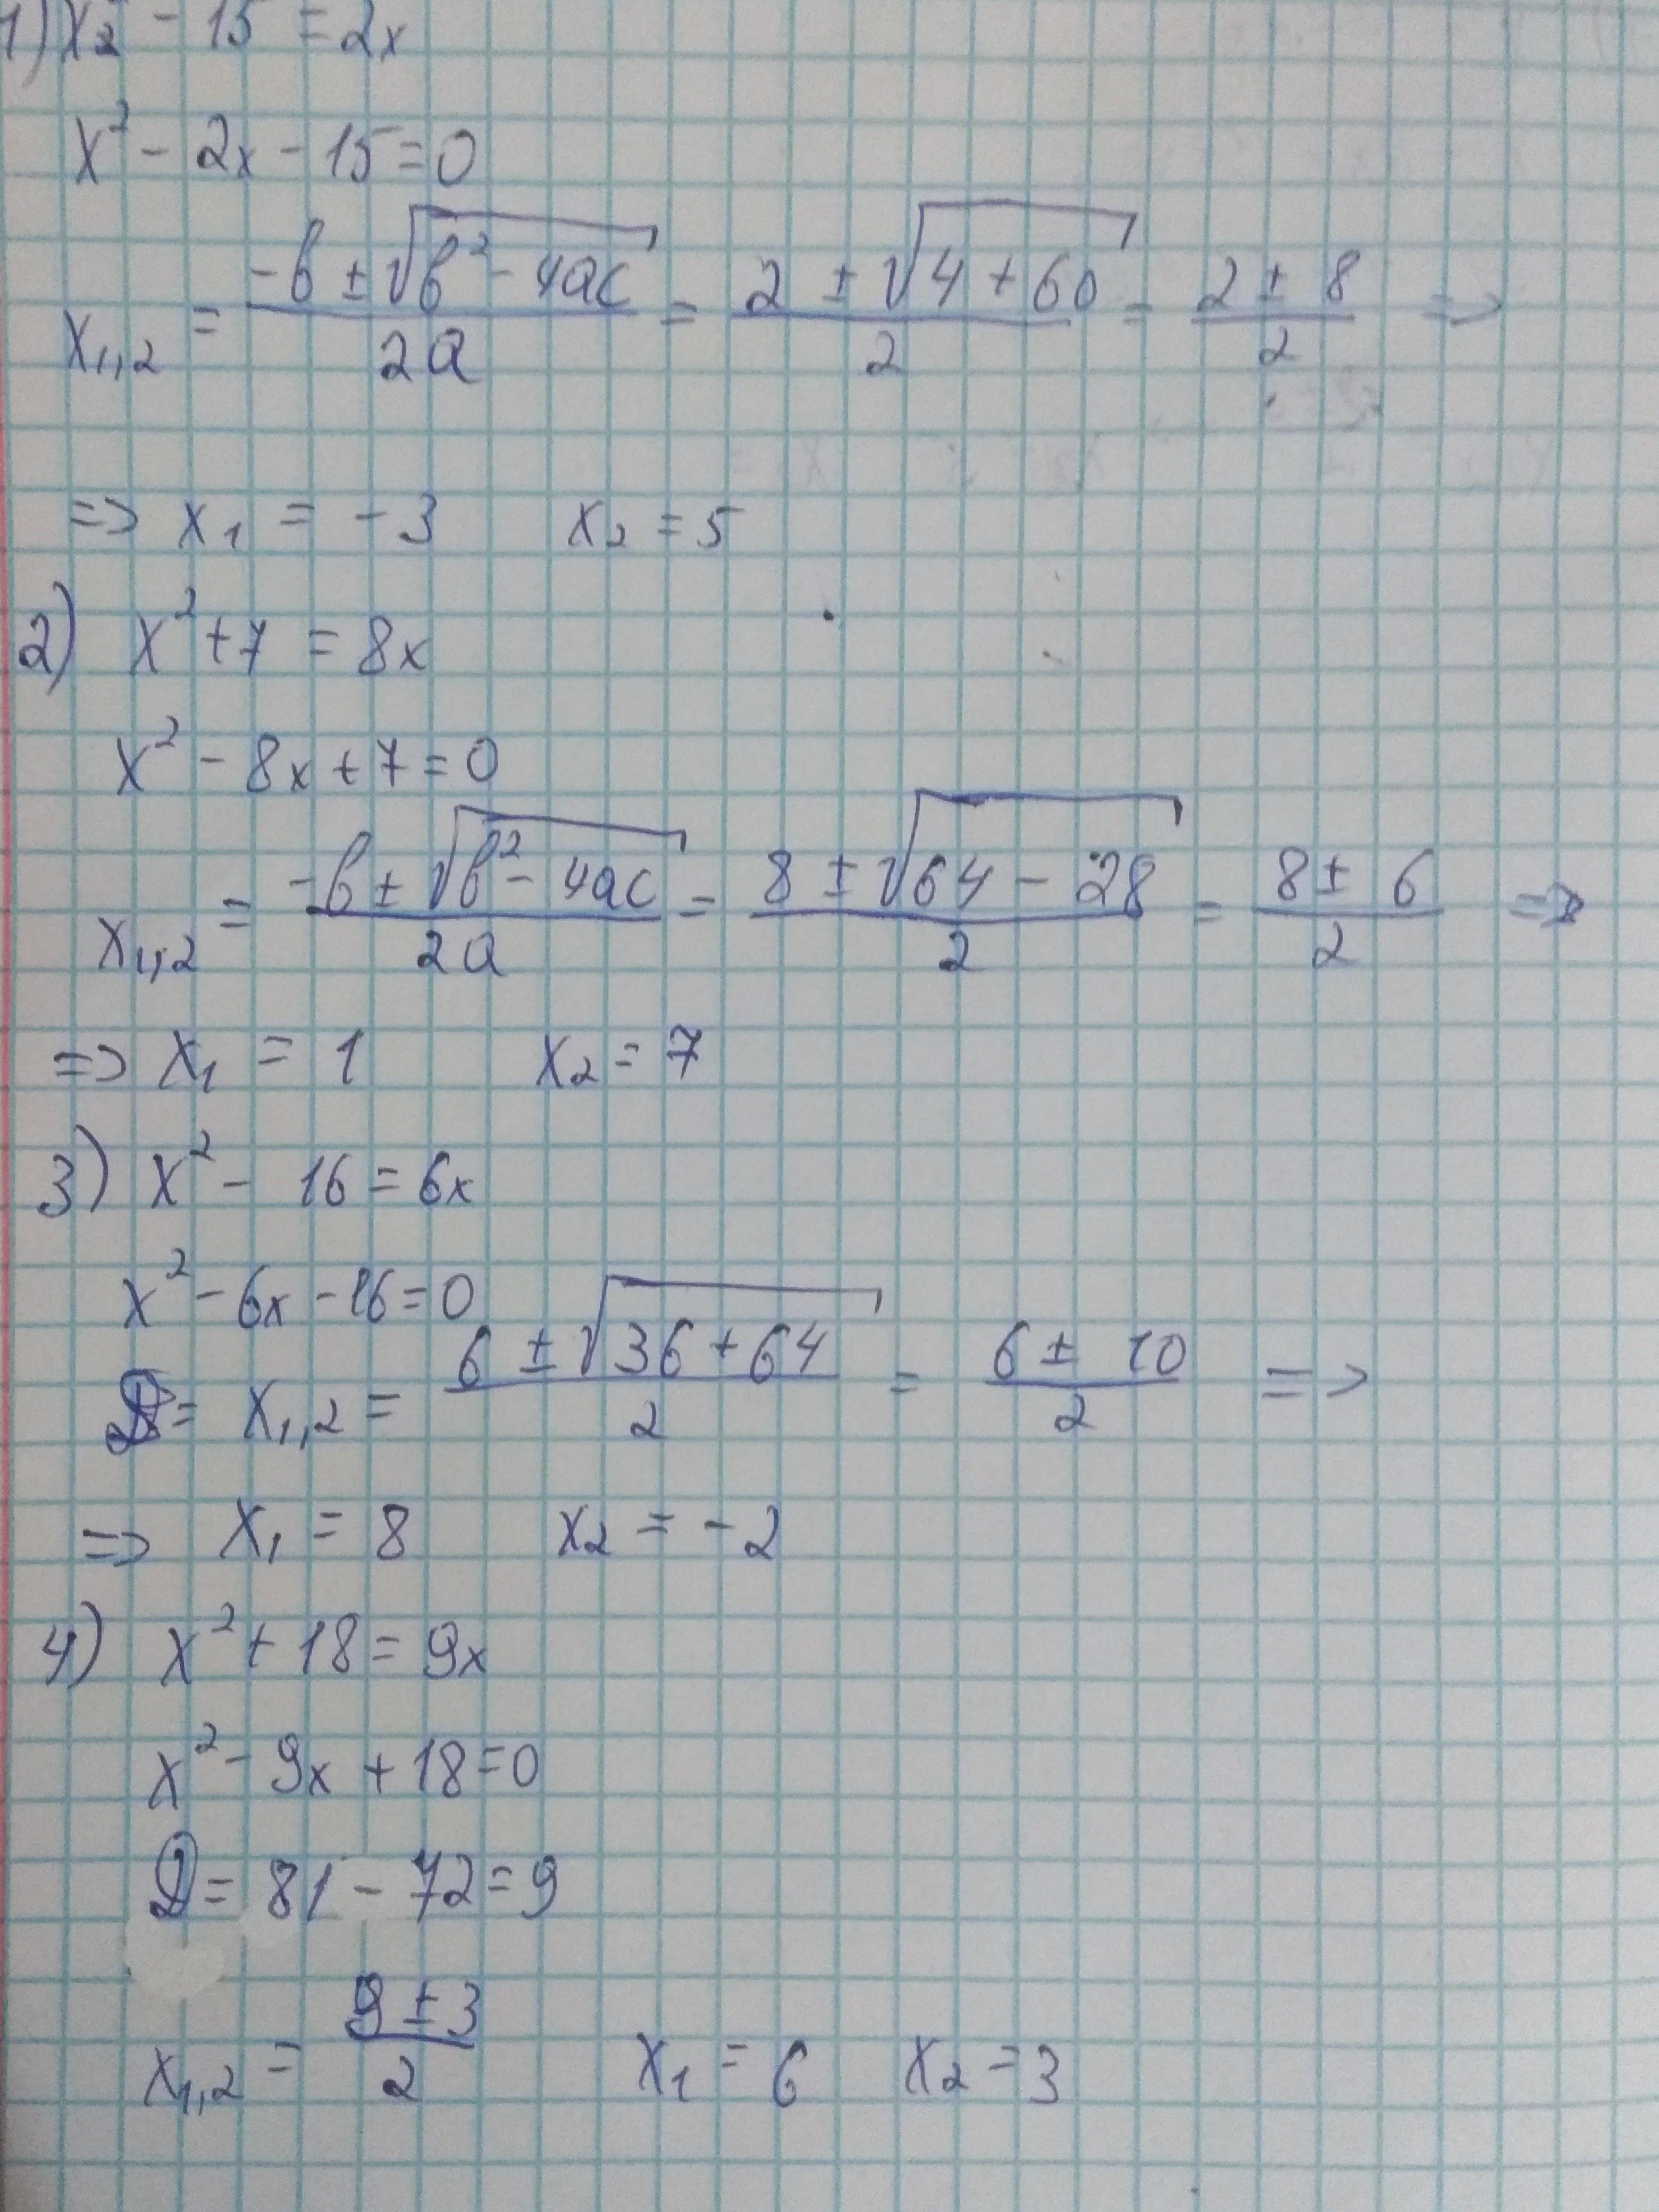 1) x² - 15 = 2x
x² - 2x - 15 = 0
x₁,₂ = (-b ± √(b² - 4ac))/(2a) = (2 ± √(4 + 60))/2 = (2 ± 8)/2 =>
=> x₁ = -3 x₂ = 5
2) x² + 7 = 8x
x² - 8x + 7 = 0
x₁,₂ = (-b ± √(b² - 4ac))/(2a) = (8 ± √(64 - 28))/2 = (8 ± 6)/2 =>
=> x₁ = 1 x₂ = 7
3) x² - 16 = 6x
x² - 6x - 16 = 0
x₁,₂ = (6 ± √(36 + 64))/2 = (6 ± 10)/2 =>
=> x₁ = 8 x₂ = -2
4) x² + 18 = 9x
x² - 9x + 18 = 0
D = 81 - 72 = 9
x₁,₂ = (9 ± 3)/2 x₁ = 6 x₂ = 3